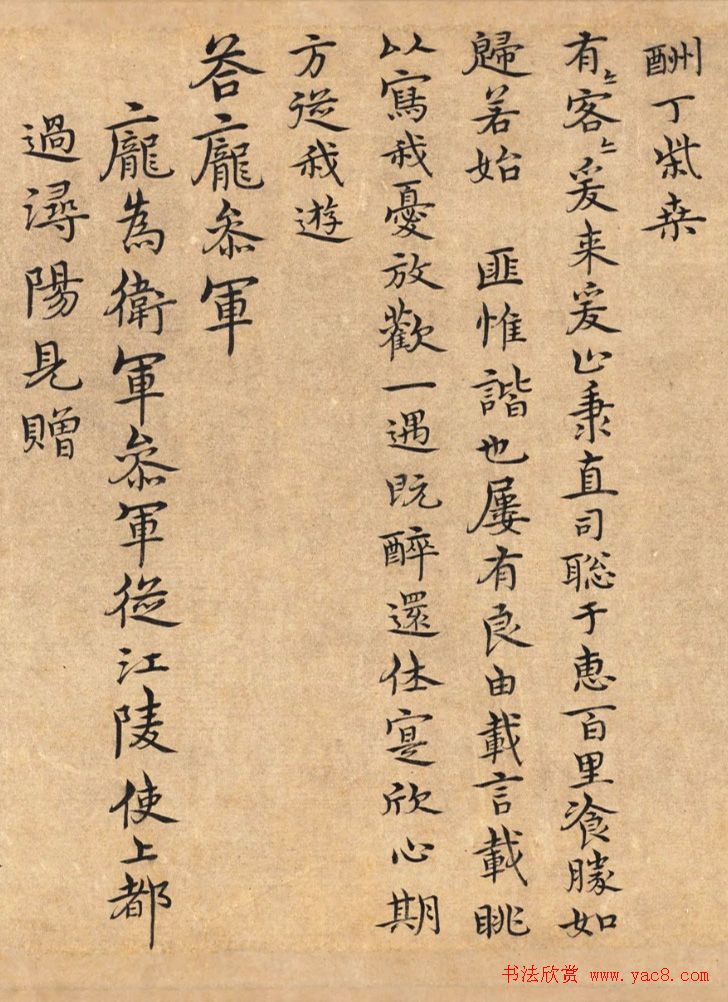 酬丁柴桒
有〻客〻爰来爰止秉直司聡于惠百里飡勝如
歸若始　匪惟諧也屢有良由載言載眺
以寫我憂放歡一遇既醉還休寔欣心期
方從我遊
荅龐叅軍
龐為衛軍叅軍從江陵使上都
過潯陽見贈
书法欣赏 www.yac8.com